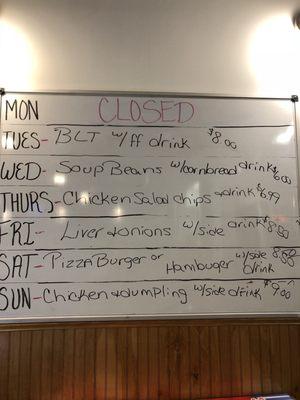 MON CLOSED
TUES- BLT w/ff drink $8.00
WED- Soup Beans w/cornbread drink $6.00
THURS- Chicken Salad chips + drink $6.99
FRI- Liver + onions w/side drink $8.50
SAT- Pizza Burger or Hamburger w/side drink 8.50
SUN- Chicken + dumpling w/side drink $9.00